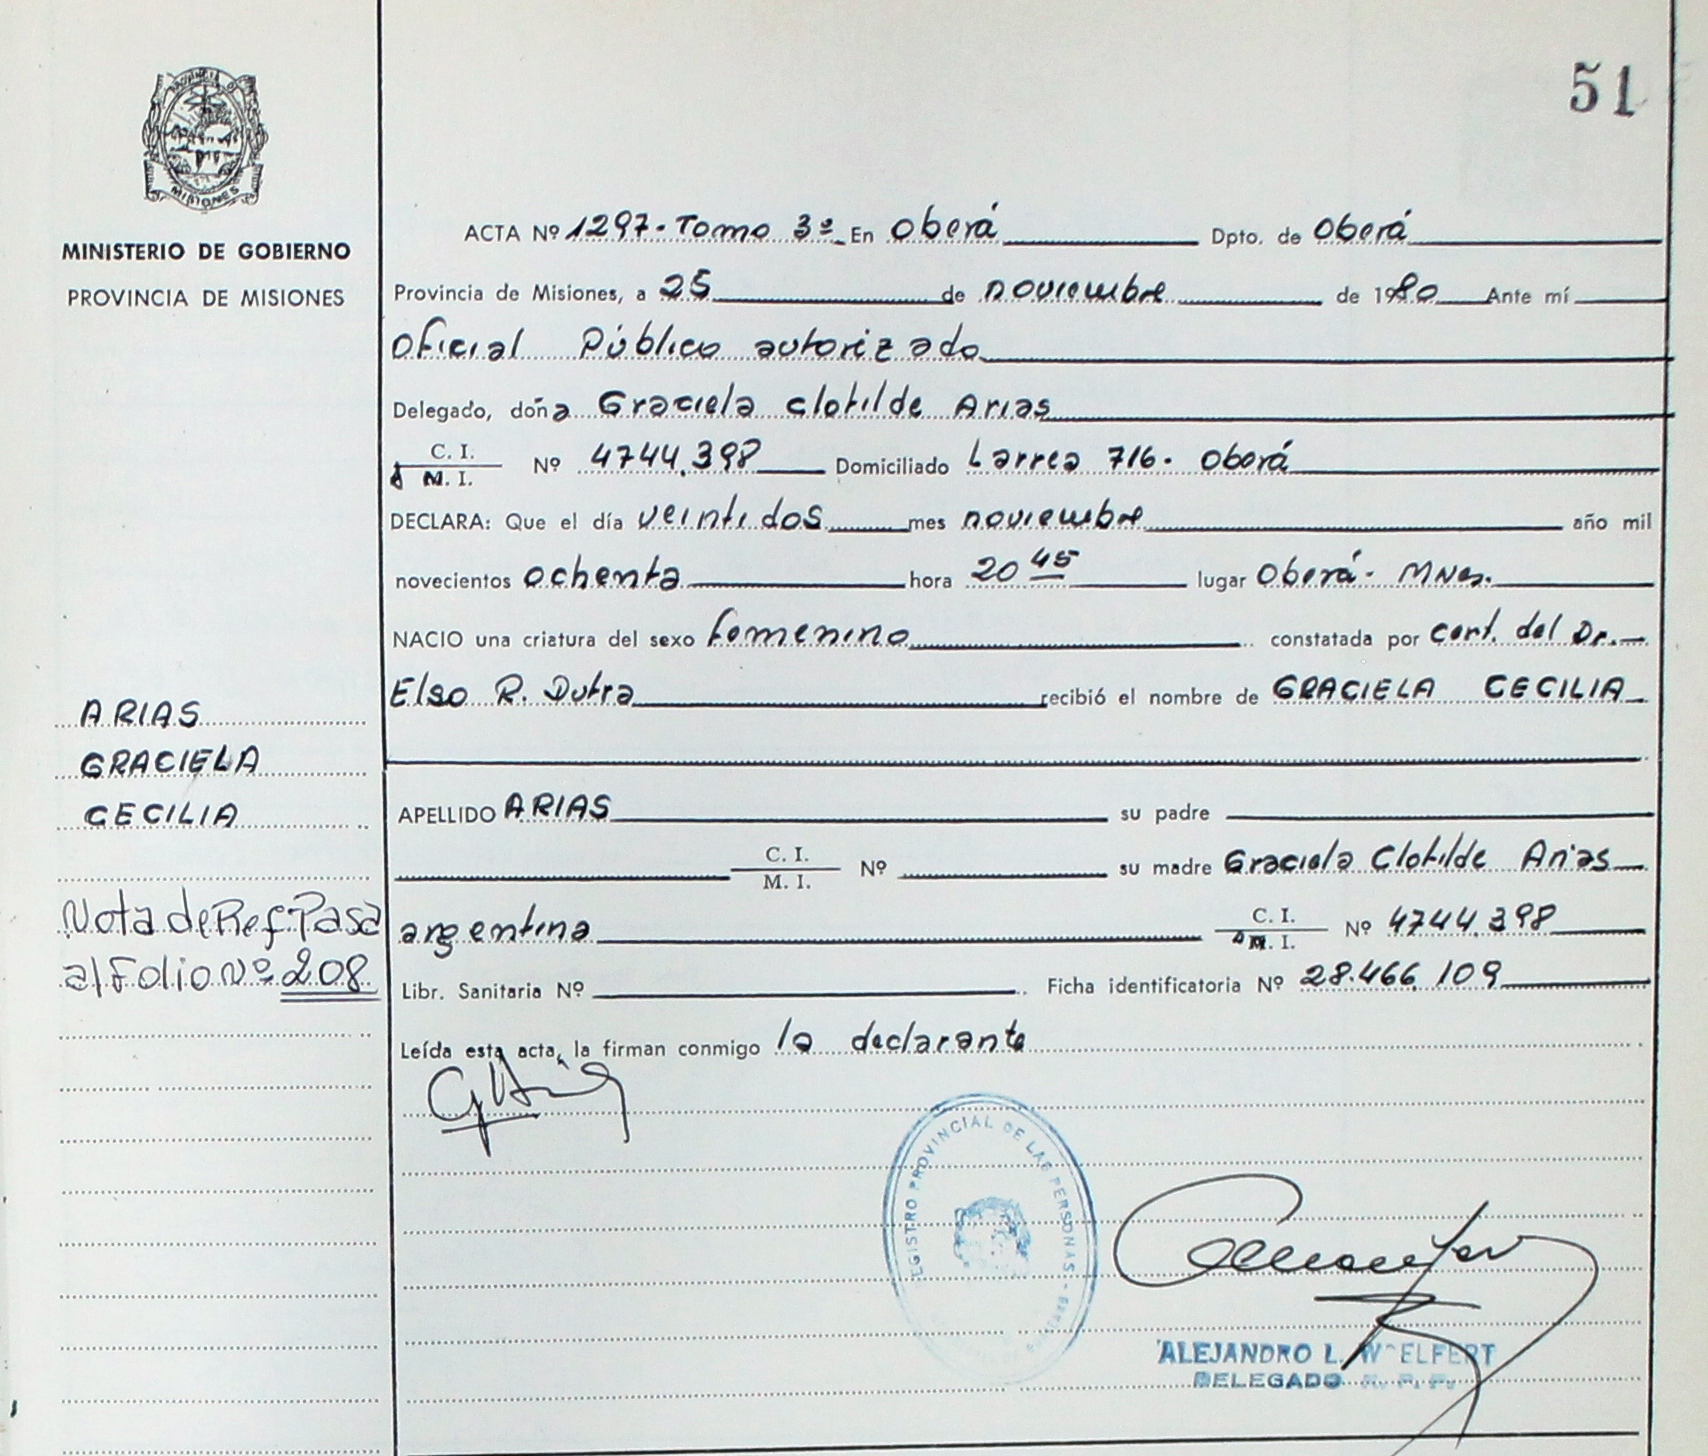 51
MISIONES
MINISTERIO DE GOBIERNO
PROVINCIA DE MISIONES
ACTA Nº 1297 - Tomo 3º En Oberá Dpto. de Oberá
Provincia de Misiones, a 25 de noviembre de 1980 Ante mí
Oficial Público autorizado
Delegado, doña Graciela Clotilde Arias
C. I.
M. I. Nº 4744.398 Domiciliado Larrea 716 - Oberá
DECLARA: Que el día veintidos mes noviembre año mil
novecientos ochenta hora 20 45 lugar Oberá - Mnes.
NACIO una criatura del sexo femenino constatada por cert. del Dr.
Elso R. Dutra recibió el nombre de GRACIELA CECILIA
ARIAS
GRACIELA
CECILIA
APELLIDO ARIAS su padre
C. I.
M. I. Nº su madre Graciela Clotilde Arias
Nota de Ref Pasa
al Folio Nº 208
argentina C. I.
M. I. Nº 4744.398
Libr. Sanitaria Nº Ficha identificatoria Nº 28.466.109
Leída esta acta, la firman conmigo la declarante
REGISTRO PROVINCIAL DE LAS PERSONAS
ALEJANDRO L. WOELFERT
DELEGADO R. P. P.